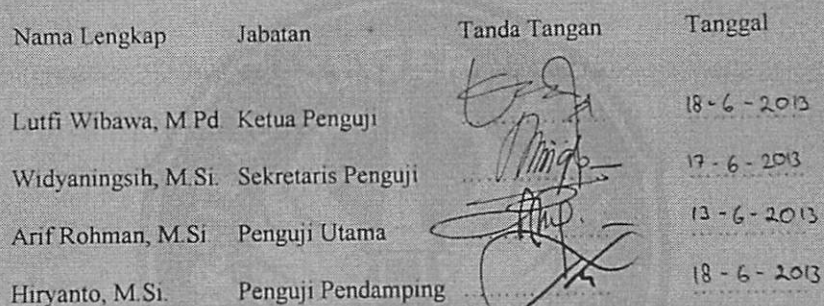 Nama Lengkap Jabatan Tanda Tangan Tanggal
Lutfi Wibawa, M.Pd Ketua Penguji 18-6-2013
Widyaningsih, M.Si. Sekretaris Penguji 17-6-2013
Arif Rohman, M.Si Penguji Utama 13-6-2013
Hiryanto, M.Si. Penguji Pendamping 18-6-2013